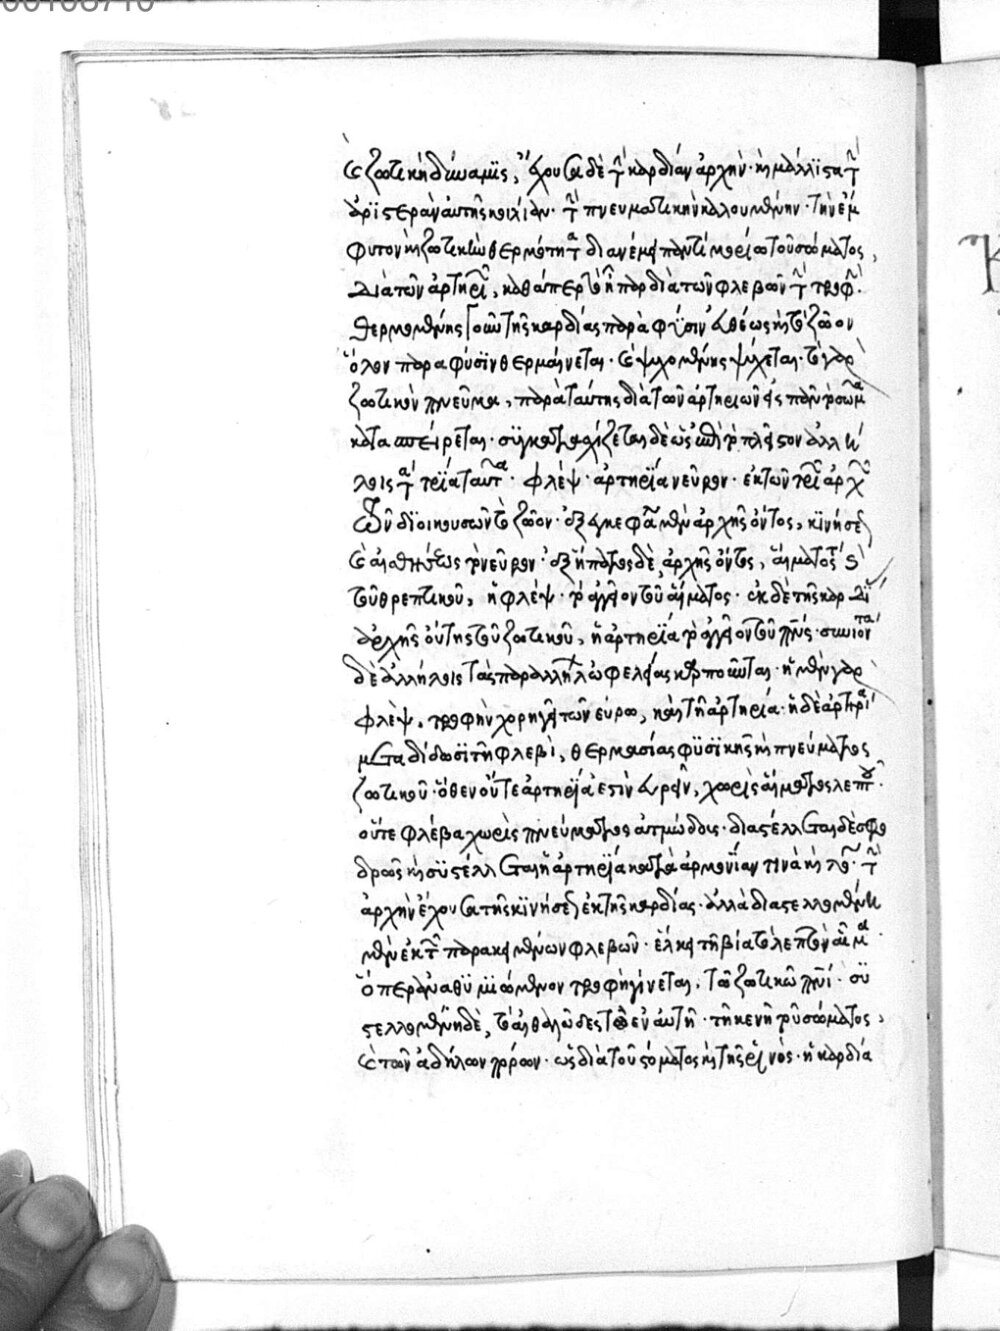 καὶ ζωτικὴ δύναμις, ἔχουσα δὲ τὴν καρδίαν ἀρχήν· καὶ μάλιστα τὴν
ἀριστερὰν αὐτῆς κοιλίαν· τὴν πνευματικὴν καλουμένην· τὴν ἔμ
φυτον καὶ ζωτικὴν θερμότητα διανέμει παντὶ μορίω τοῦ σώματος,
διὰ τῶν ἀρτηριῶν, καθάπερ τὸ ἧπαρ διὰ τῶν φλεβῶν τὴν τροφήν.
θερμομένης γοῦν τῆς καρδίας παρὰ φύσιν εὐθέως καὶ τὸ ζῶον
ὅλον παρὰ φύσιν θερμαίνεται· καὶ ψυχομένης ψύχεται· τὸ γὰρ
ζωτικὸν πνεῦμα, παρὰ ταύτης διὰ τῶν ἀρτηριῶν εἰς πᾶν τὸ σῶμα
κατασπείρεται· συγκατα δὲ ὡς ἐπὶ τὸ πλεῖστον ἀλλή
λοις τὰ τρία ταῦτα· φλέψ· ἀρτηρία νεῦρον· ἐκ τῶν τριῶν ἀρχῶν
τῶν διοικουσῶν τὸ ζῶον· ἐξ ἐγκεφάλου μὲν ἀρχῆς ὄντος, κινήσεως
καὶ αἰσθήσεως τὸ νεῦρον· ἐξ ἥπατος δὲ, ἀρχῆς ὄντος, αἵματός τε
τοῦ θρεπτικοῦ, ἡ φλέψ· τὸ ἀγγεῖον τοῦ αἵματος· ἐκ δὲ τῆς καρδίας
ἀρχῆς οὔσης τοῦ ζωτικοῦ, ἡ ἀρτηρία τὸ ἀγγεῖον τοῦ πνεύματος· συνιόντα
δὲ ἀλλήλοις τὰς παρ' ἀλλήλων ὠφελείας καρποῦνται· ἡ μὲν γὰρ
φλέψ, τροφὴν χορηγεῖ τῶ νεύρω, καὶ τῆ ἀρτηρία· ἡ δὲ ἀρτηρία
μεταδίδωσι τῆ φλεβὶ, θερμασίας φυσικῆς καὶ πνεύματος
ζωτικοῦ· ὅθεν οὔτε ἀρτηρία ἐστὶν εὑρεῖν, χωρὶς αἵματος λεπτοῦ·
οὔτε φλέβα χωρὶς πνεύματος ἀτμώδους· διαστέλλεται δὲ σφο
δρῶς καὶ συστέλλεται ἡ ἀρτηρία κατὰ ἁρμονίαν τινὰ καὶ λόγον· τὴν
ἀρχὴν ἔχουσα τῆς κινήσεως ἐκ τῆς καρδίας· ἀλλὰ διαστελλομένη
μὲν ἐκ τῶν παρακειμένων φλεβῶν· ἕλκει τῆ βία τὸ λεπτὸν αἷμα·
ὅπερ ἀναθυμιώμενον τροφὴ γίνεται, τῶ ζωτικῶ πνεύματι· συ
στελλομένη δὲ, τὸ αἰθαλῶδες τὸ ἐν αὐτῆ· τῆ κενῆ τοῦ σώματος,
καὶ τῶν ἀδήλων πόρων· ὡς διὰ τοῦ στόματος καὶ τῆς ῥινὸς· ἡ καρδία